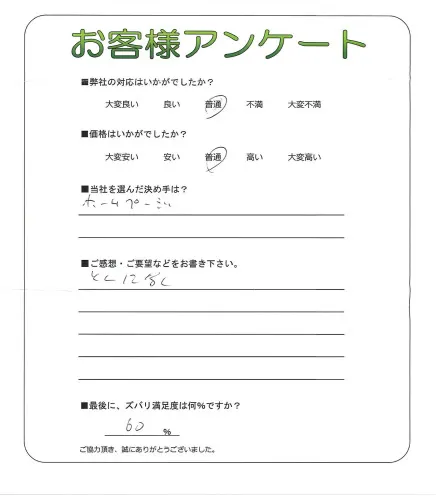 お客様アンケート
■弊社の対応はいかがでしたか?
大変良い 良い 普通 不満 大変不満
■価格はいかがでしたか?
大変安い 安い 普通 高い 大変高い
■当社を選んだ決め手は?
ホームページ
■ご感想・ご要望などをお書き下さい。
とくになし
■最後に、ズバリ満足度は何%ですか?
60 %
ご協力頂き、誠にありがとうございました。